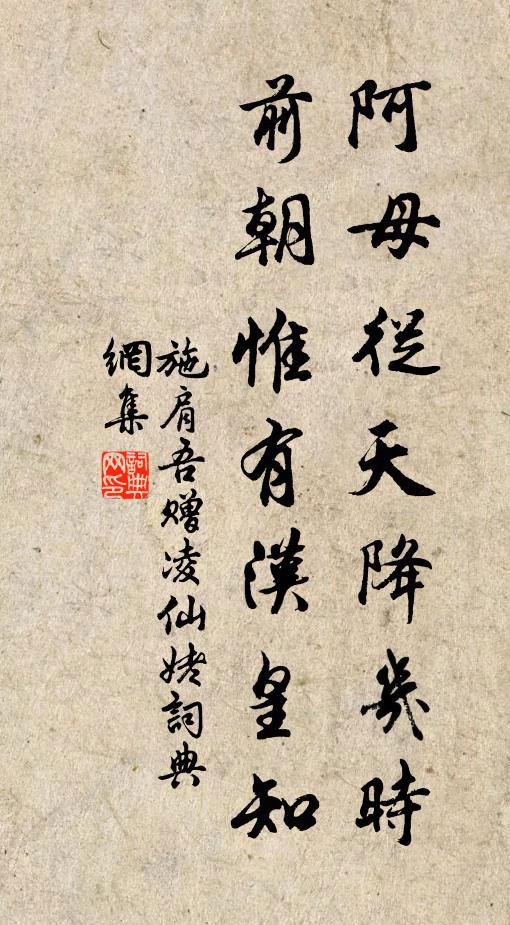 阿母從天降幾時
前朝惟有漢皇知
施肩吾赠凌仙姥詞典
網集
詞典網印